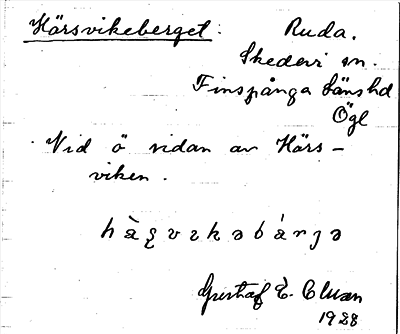 Hörsvikeberget: Ruda.
Skedevi sn.
Finspånga länshd
Ögl
Vid ö sidan av Hörs-
viken.
Gustaf E.
1928